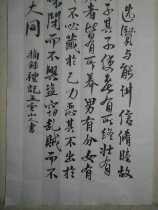 選賢與能講信修睦故
子其子使老有所終壯有
者皆有所養男有分女有
不必藏於己力惡其不出於
謀閉而不興盜竊亂賊而不
大同
摘錄禮記
書